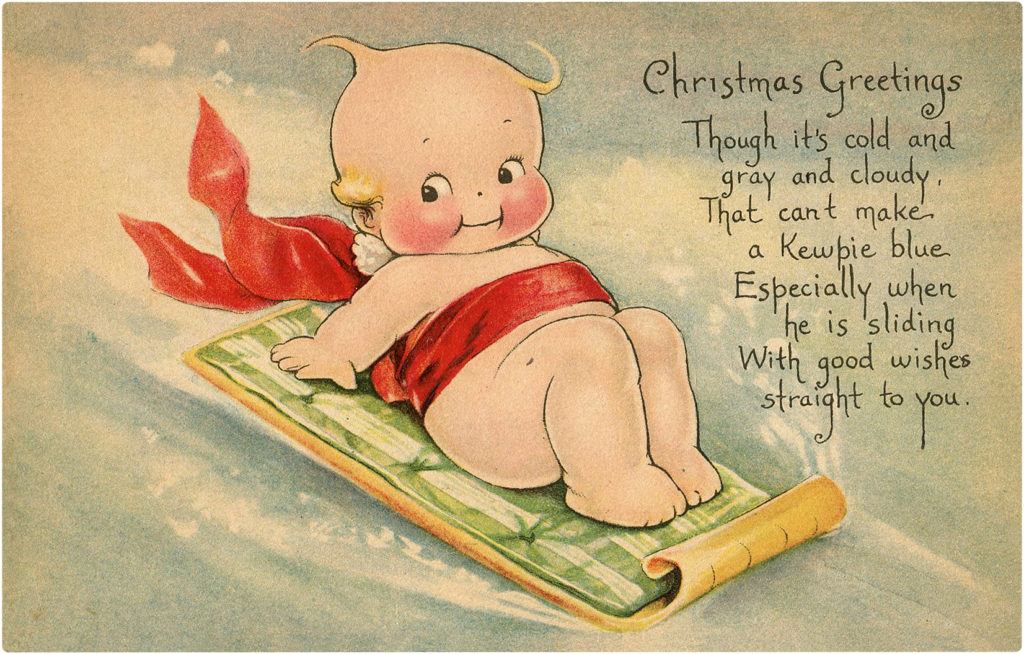 Christmas Greetings
Though it's cold and
gray and cloudy,
That can't make
a Kewpie blue
Especially when
he is sliding
With good wishes
straight to you.